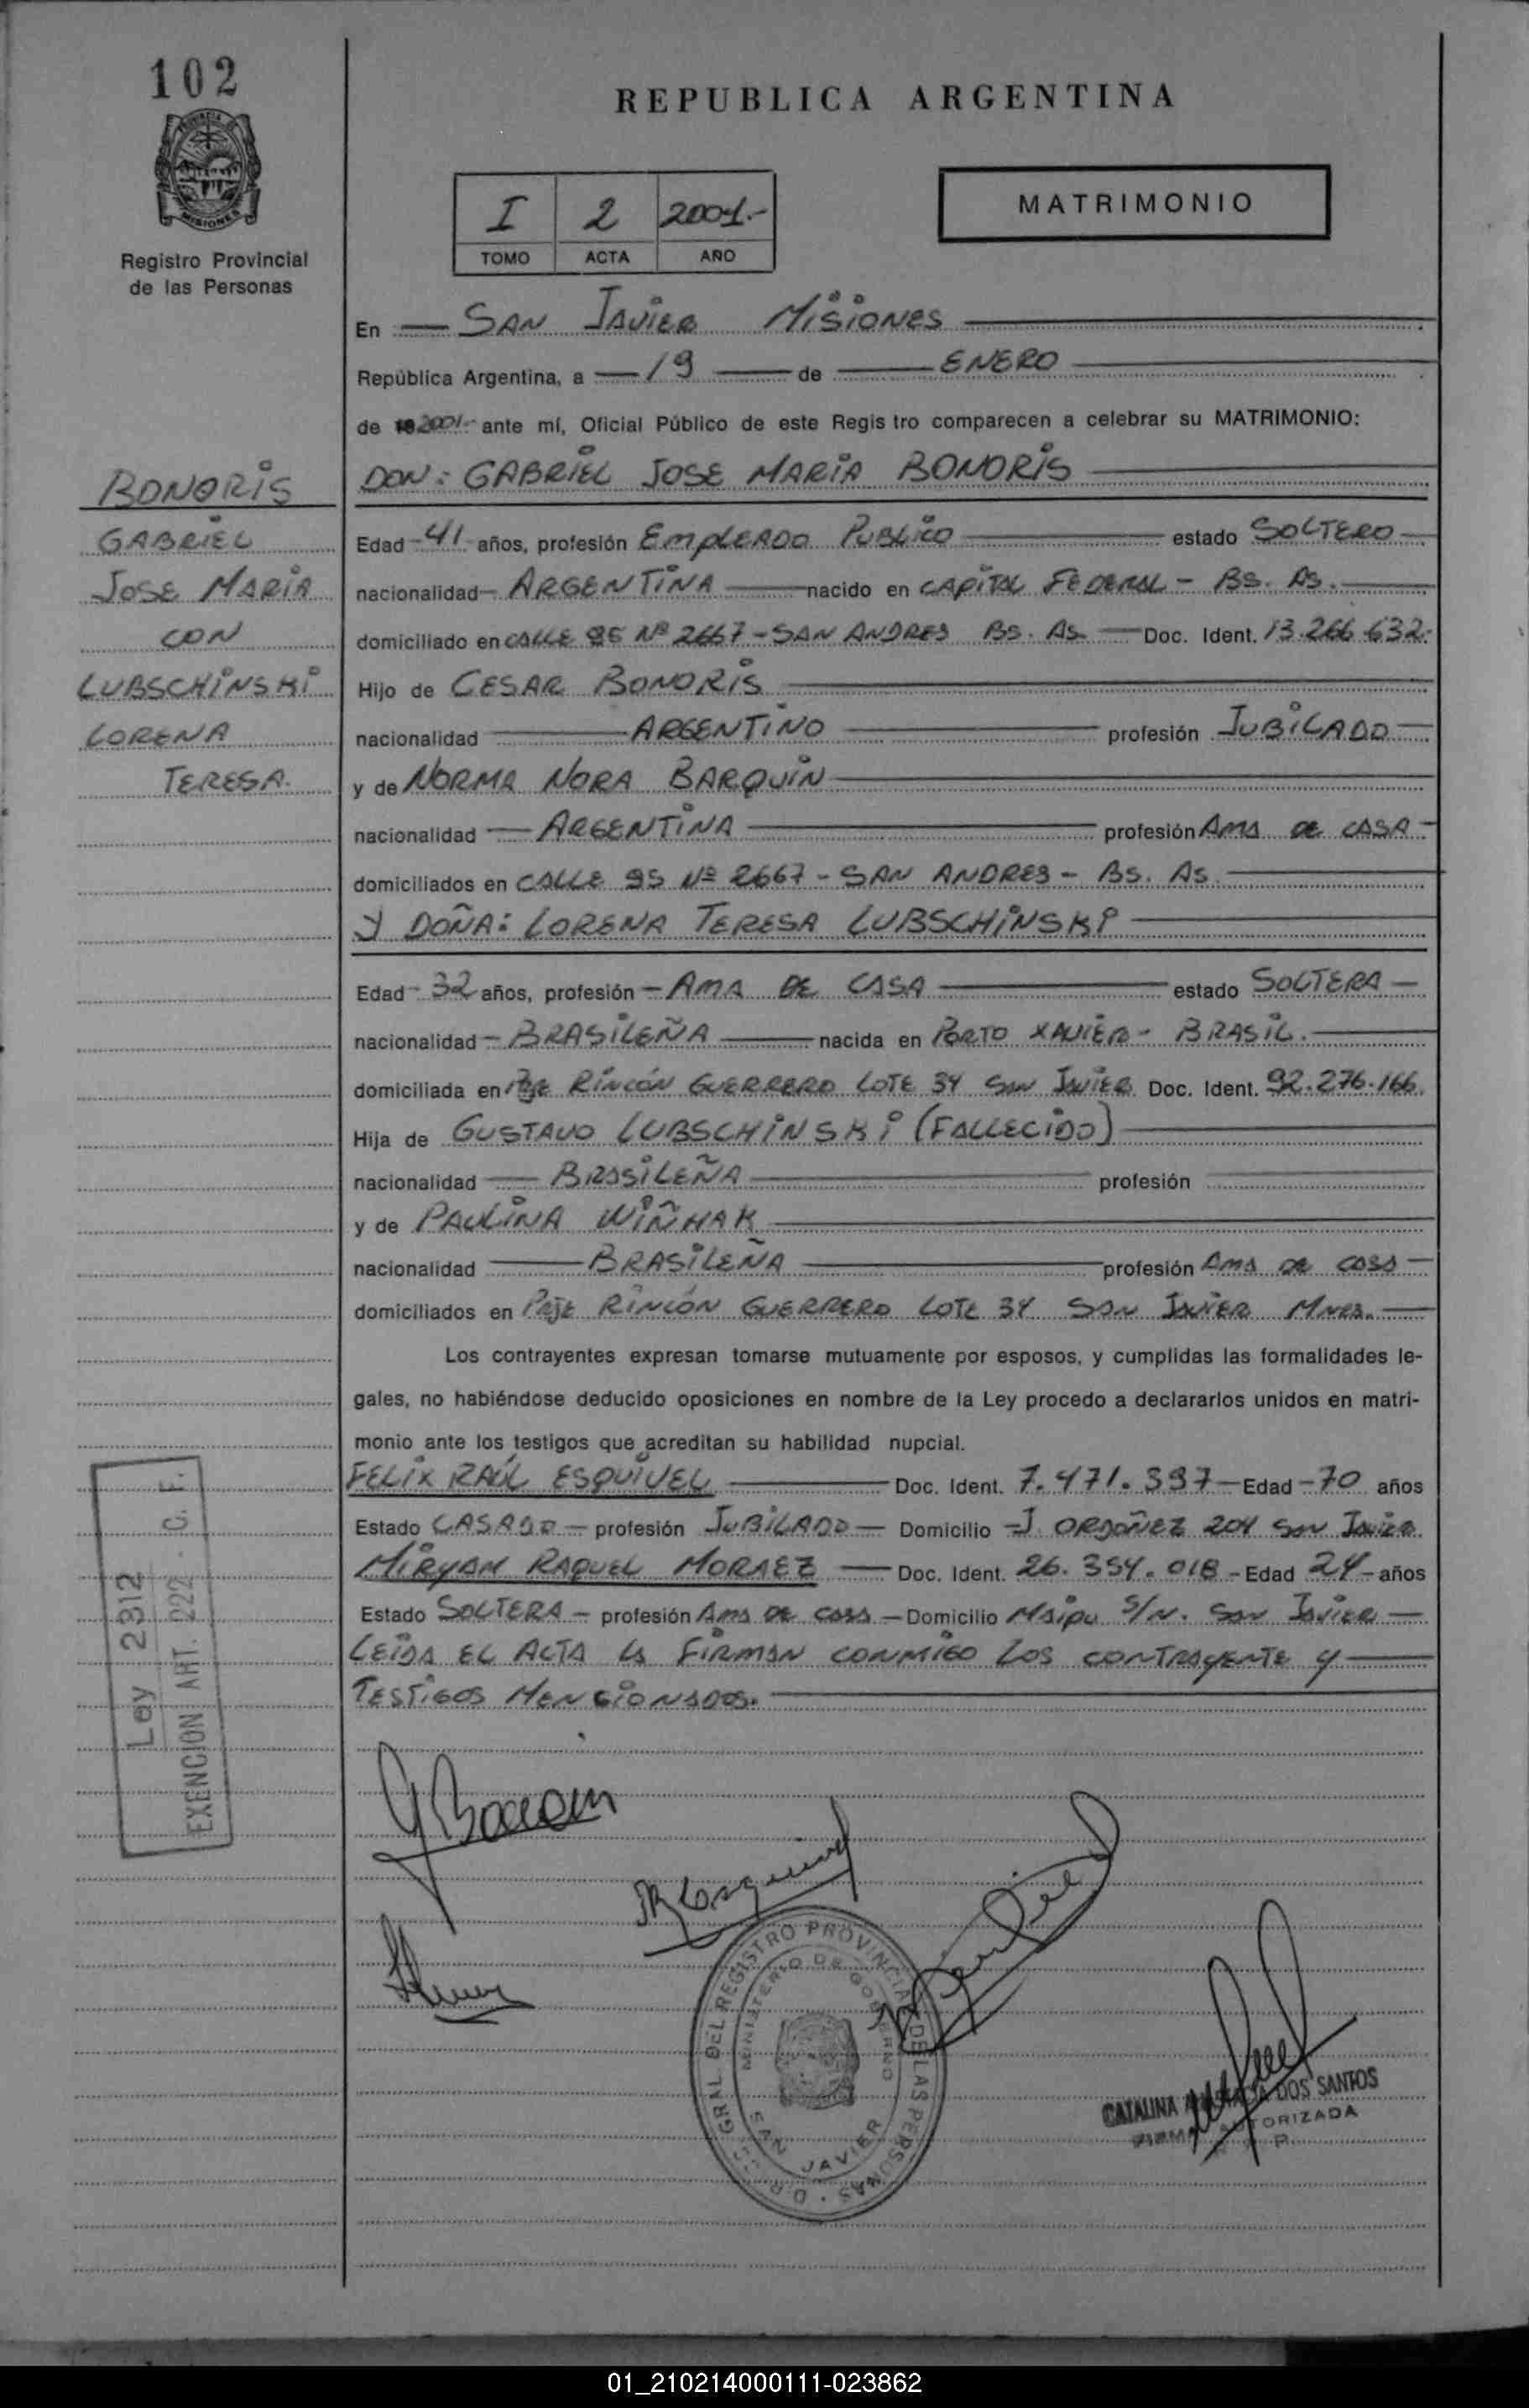 102
REPUBLICA ARGENTINA
PROVINCIA DE
MISIONES
Registro Provincial
de las Personas
I 2 2001.-
TOMO ACTA AÑO
MATRIMONIO
En SAN JAVIER MISIONES
República Argentina, a 19 de ENERO
de 2001.- ante mí, Oficial Público de este Regis tro comparecen a celebrar su MATRIMONIO:
BONORIS
GABRIEL
JOSE MARIA
CON
LUBSCHINSKI
LORENA
TERESA.
DON: GABRIEL JOSE MARIA BONORIS
Edad 41 años, profesión EMPLEADO PUBLICO estado SOLTERO
nacionalidad ARGENTINA nacido en CAPITAL FEDERAL - BS. AS.
domiciliado en CALLE Nº 2667 - SAN ANDRES BS. AS. Doc. Ident. 13.266.632.
Hijo de CESAR BONORIS
nacionalidad ARGENTINO profesión JUBILADO
y de NORMA NORA BARQUIN
nacionalidad ARGENTINA profesión AMA DE CASA
domiciliados en CALLE 95 Nº 2667 - SAN ANDRES - BS. AS.
Y DOÑA: LORENA TERESA LUBSCHINSKI
Edad 32 años, profesión AMA DE CASA estado SOLTERA
nacionalidad BRASILEÑA nacida en PORTO XAVIER - BRASIL.
domiciliada en PJE RINCÓN GUERRERO LOTE 34 SAN JAVIER Doc. Ident. 92.276.166.
Hija de GUSTAVO LUBSCHINSKI (FALLECIDO)
nacionalidad BRASILEÑA profesión
y de PAULINA WIÑHAK
nacionalidad BRASILEÑA profesión AMA DE CASA
domiciliados en PJE RINCÓN GUERRERO LOTE 34 SAN JAVIER MNES.
Los contrayentes expresan tomarse mutuamente por esposos, y cumplidas las formalidades le-
gales, no habiéndose deducido oposiciones en nombre de la Ley procedo a declararlos unidos en matri-
monio ante los testigos que acreditan su habilidad nupcial.
FELIX RAÚL ESQUIVEL Doc. Ident. 7.471.397 Edad 70 años
Estado CASADO profesión JUBILADO Domicilio J ORDOÑEZ 204 SAN JAVIER
MIRYAM RAQUEL MORAEZ Doc. Ident. 26.354.018 - Edad 24 años
Estado SOLTERA profesión AMA DE CASA Domicilio MAIPU S/N. SAN JAVIER
LEIDA EL ACTA LA FIRMAN CONMIGO LOS CONTRAYENTE Y
TESTIGOS MENCIONADOS.
Ley 2312
EXENCION ART. 222 - C. F.
GRAL DEL REGISTRO PROVINCIAL DE LAS PERSONAS
MINISTERIO DE GOBIERNO
SAN JAVIER
CATALINA DOS SANTOS
FIRMA AUTORIZADA
01_210214000111-023862